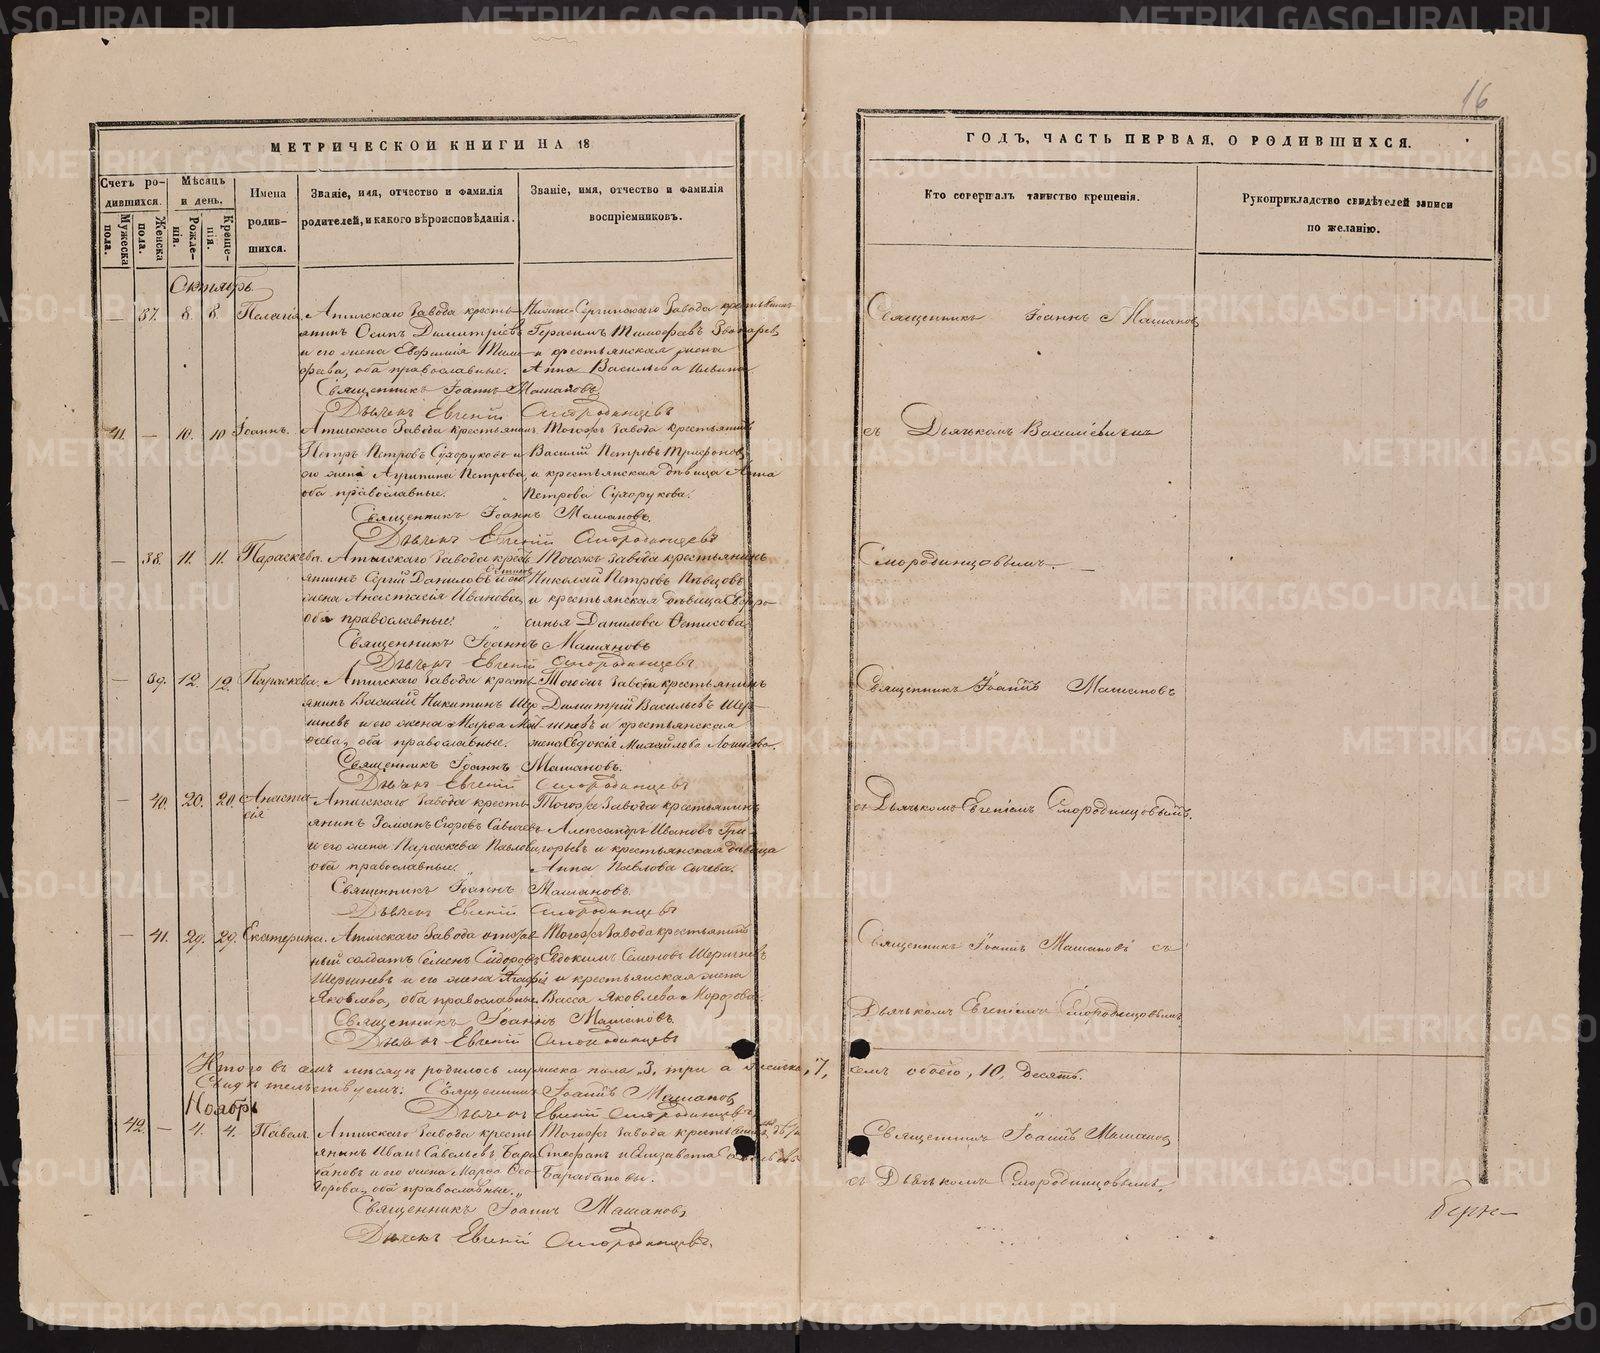 16
МЕТРИЧЕСКОЙ КНИГИ НА 18
ГОДЪ, ЧАСТЬ ПЕРВАЯ, О РОДИВШИХСЯ.
Счетъ ро-
дившихся.
Мужеска пола.
Женска пола.
Мѣсяцъ
и день.
Рожде-
нія.
Креще-
нія.
Имена
родив-
шихся.
Званіе, имя, отчество и фамилія
родителей, и какого вѣроисповѣданія.
Званіе, имя, отчество и фамилія
воспріемниковъ.
Кто совершалъ таинство крещенія.
Рукоприкладство свидѣтелей записи
по желанію.
Октябрь
— 37. 8. 8. Пелагія.
Атигскаго Завода кресть-
янинъ Осипъ Димитріевъ
и его жена Евфимія Тимо-
феева, оба православные.
Нижне-Сергинскаго Завода крестьянинъ
Герасимъ Тимофеевъ
и крестьянская жена
Анна Васильева Ильина
Священникъ Іоаннъ Машановъ
Дьячекъ Евгеній Смородинцевъ
Священникъ Іоаннъ Машановъ
41. — 10. 10 Іоаннъ.
Атигскаго Завода крестьянинъ
Петръ Петровъ Сухоруковъ и
его жена Агрипина Петрова,
оба православные.
Тогоже Завода крестьянинъ
Василій Петровъ Трифоновъ
и крестьянская дѣвица Анна
Петрова Сухорукова.
Священникъ Іоаннъ Машановъ.
Дьячекъ Евгеній Смородинцевъ
съ Дьячкомъ
— 38. 11. 11. Параскева.
Атигскаго Завода кресть-
янинъ Сергій Даниловъ и его
жена Анастасія Иванова,
оба православные.
Тогоже Завода крестьянинъ
Николай Петровъ Пѣвцовъ
и крестьянская дѣвица Евфро-
синья Данилова Фетисова.
Священникъ Іоаннъ Машановъ
Дьячекъ Евгеній Смородинцевъ
Смородинцовымъ. —
— 39. 12. 12. Параскева.
Атигскаго Завода кресть-
янинъ Василій Никитинъ Шер-
шневъ и его жена Марфа Мат-
феева, оба православные.
Тогоже Завода крестьянинъ
Димитрій Васильевъ Шер-
шневъ и крестьянская
жена Евдокія Михайлова
Священникъ Іоаннъ Машановъ.
Дьячекъ Евгеній Смородинцевъ
Священникъ Іоаннъ Машановъ
— 40. 20. 20. Анаста-
сія
Атигскаго Завода кресть-
янинъ Романъ Егоровъ Савичевъ
и его жена Параскева Павлова,
оба православные.
Тогоже Завода крестьянинъ
Александръ Ивановъ Гри-
горьевъ и крестьянская дѣвица
Анна Павлова
Священникъ Іоаннъ Машановъ.
Дьячекъ Евгеній Смородинцевъ
съ Дьячкомъ Евгеніемъ Смородинцовымъ.
— 41. 29. 29. Екатерина.
Атигскаго Завода
солдатъ Семенъ Сидоровъ
Шершневъ и его жена Агафія
Яковлева, оба православные.
Тогоже Завода крестьянинъ
Евдокимъ Семеновъ Шершневъ
и крестьянская жена
Васса Яковлева Морозова.
Священникъ Іоаннъ Машановъ.
Дьячекъ Евгеній Смородинцевъ
Священникъ Іоаннъ Машановъ съ
Дьячкомъ Евгеніемъ Смородинцовымъ.
Итого въ семъ мѣсяцѣ родилось мужеска пола „3, три а женска, 7,
семь обоего, 10, десять.
Свидѣтельствуемъ: Священникъ Іоаннъ Машановъ
Дьячекъ Евгеній Смородинцевъ
Ноябрь
42. — 4. 4. Павелъ.
Атигскаго Завода кресть-
янинъ Иванъ Савельевъ Бара-
бановъ и его жена Марфа Фео-
дорова, оба православные.
Тогоже Завода
Стефанъ и Елизавета
Барабановы.
Священникъ Іоаннъ Машановъ
Дьячекъ Евгеній Смородинцевъ.
Священникъ Іоаннъ Машановъ
съ Дьячкомъ Смородинцовымъ.
METRIKI.GASO-URAL.RU